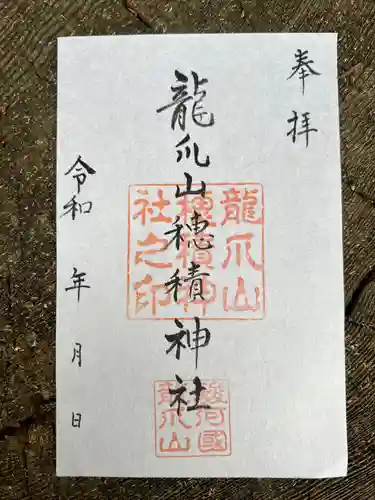 奉拝
龍爪山穂積神社
龍爪山
穂積神
社之印
駿河國
龍爪山
令和 年 月 日